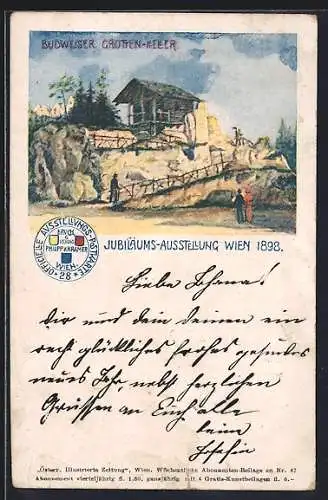 BUDWEISER GROTTEN-KELLER
OFFICIELLE AUSSTELLUNGS-POSTKARTE
DRUCK
U. VERLAG
PHILIPP & KRAMER
WIEN.
28
JUBILÄUMS-AUSSTELLUNG WIEN 1898.
Liebe Johana!
Dir und dein deinen ein
recht glückliches frohes gesundes
neues Jahr, nebst herzlichen
Grüssen an Euch alle
beim
Josefin
„Österr. Illustrirte Zeitung“, Wien. Wöchentliche Abonnenten-Beilage zu Nr. 47
Abonnement vierteljährig fl. 1.50, ganzjährig mit 4 Gratis-Kunstbeilagen fl. 6.—